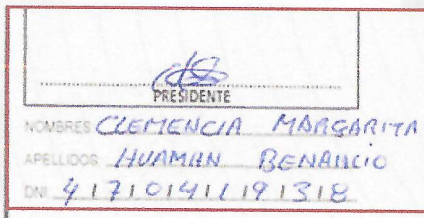 PRESIDENTE
NOMBRES CLEMENCIA MARGARITA
APELLIDOS HUAMAN BENANCIO
DNI 41704193 8